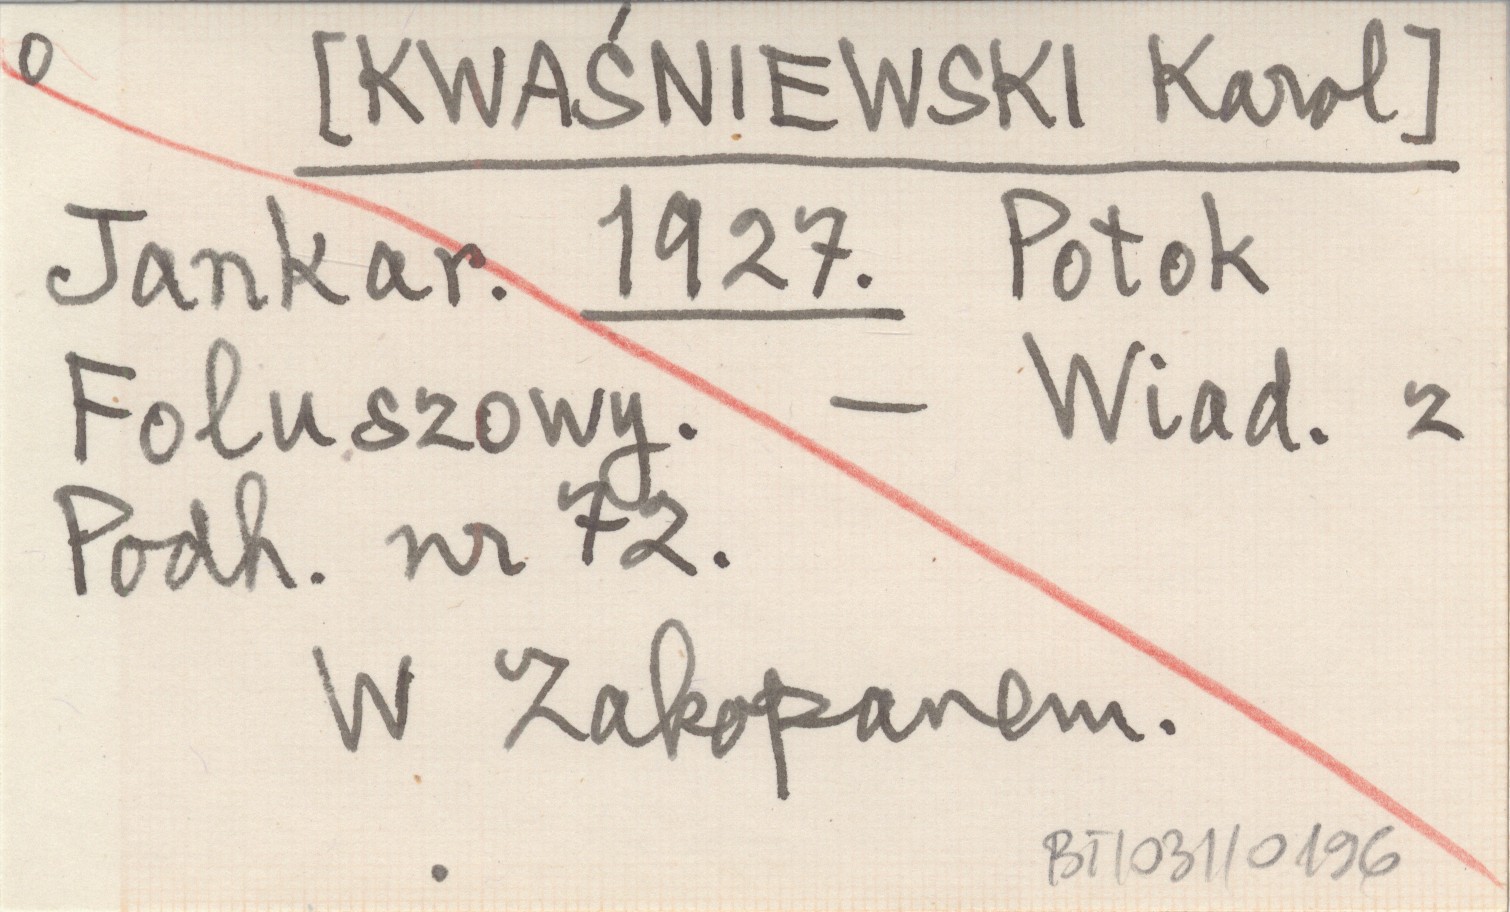 o [KWAŚNIEWSKI Karol]
Jankar. 1927. Potok
Foluszowy. — Wiad. z
Podh. nr 72.
W Zakopanem.
BT/031/0196